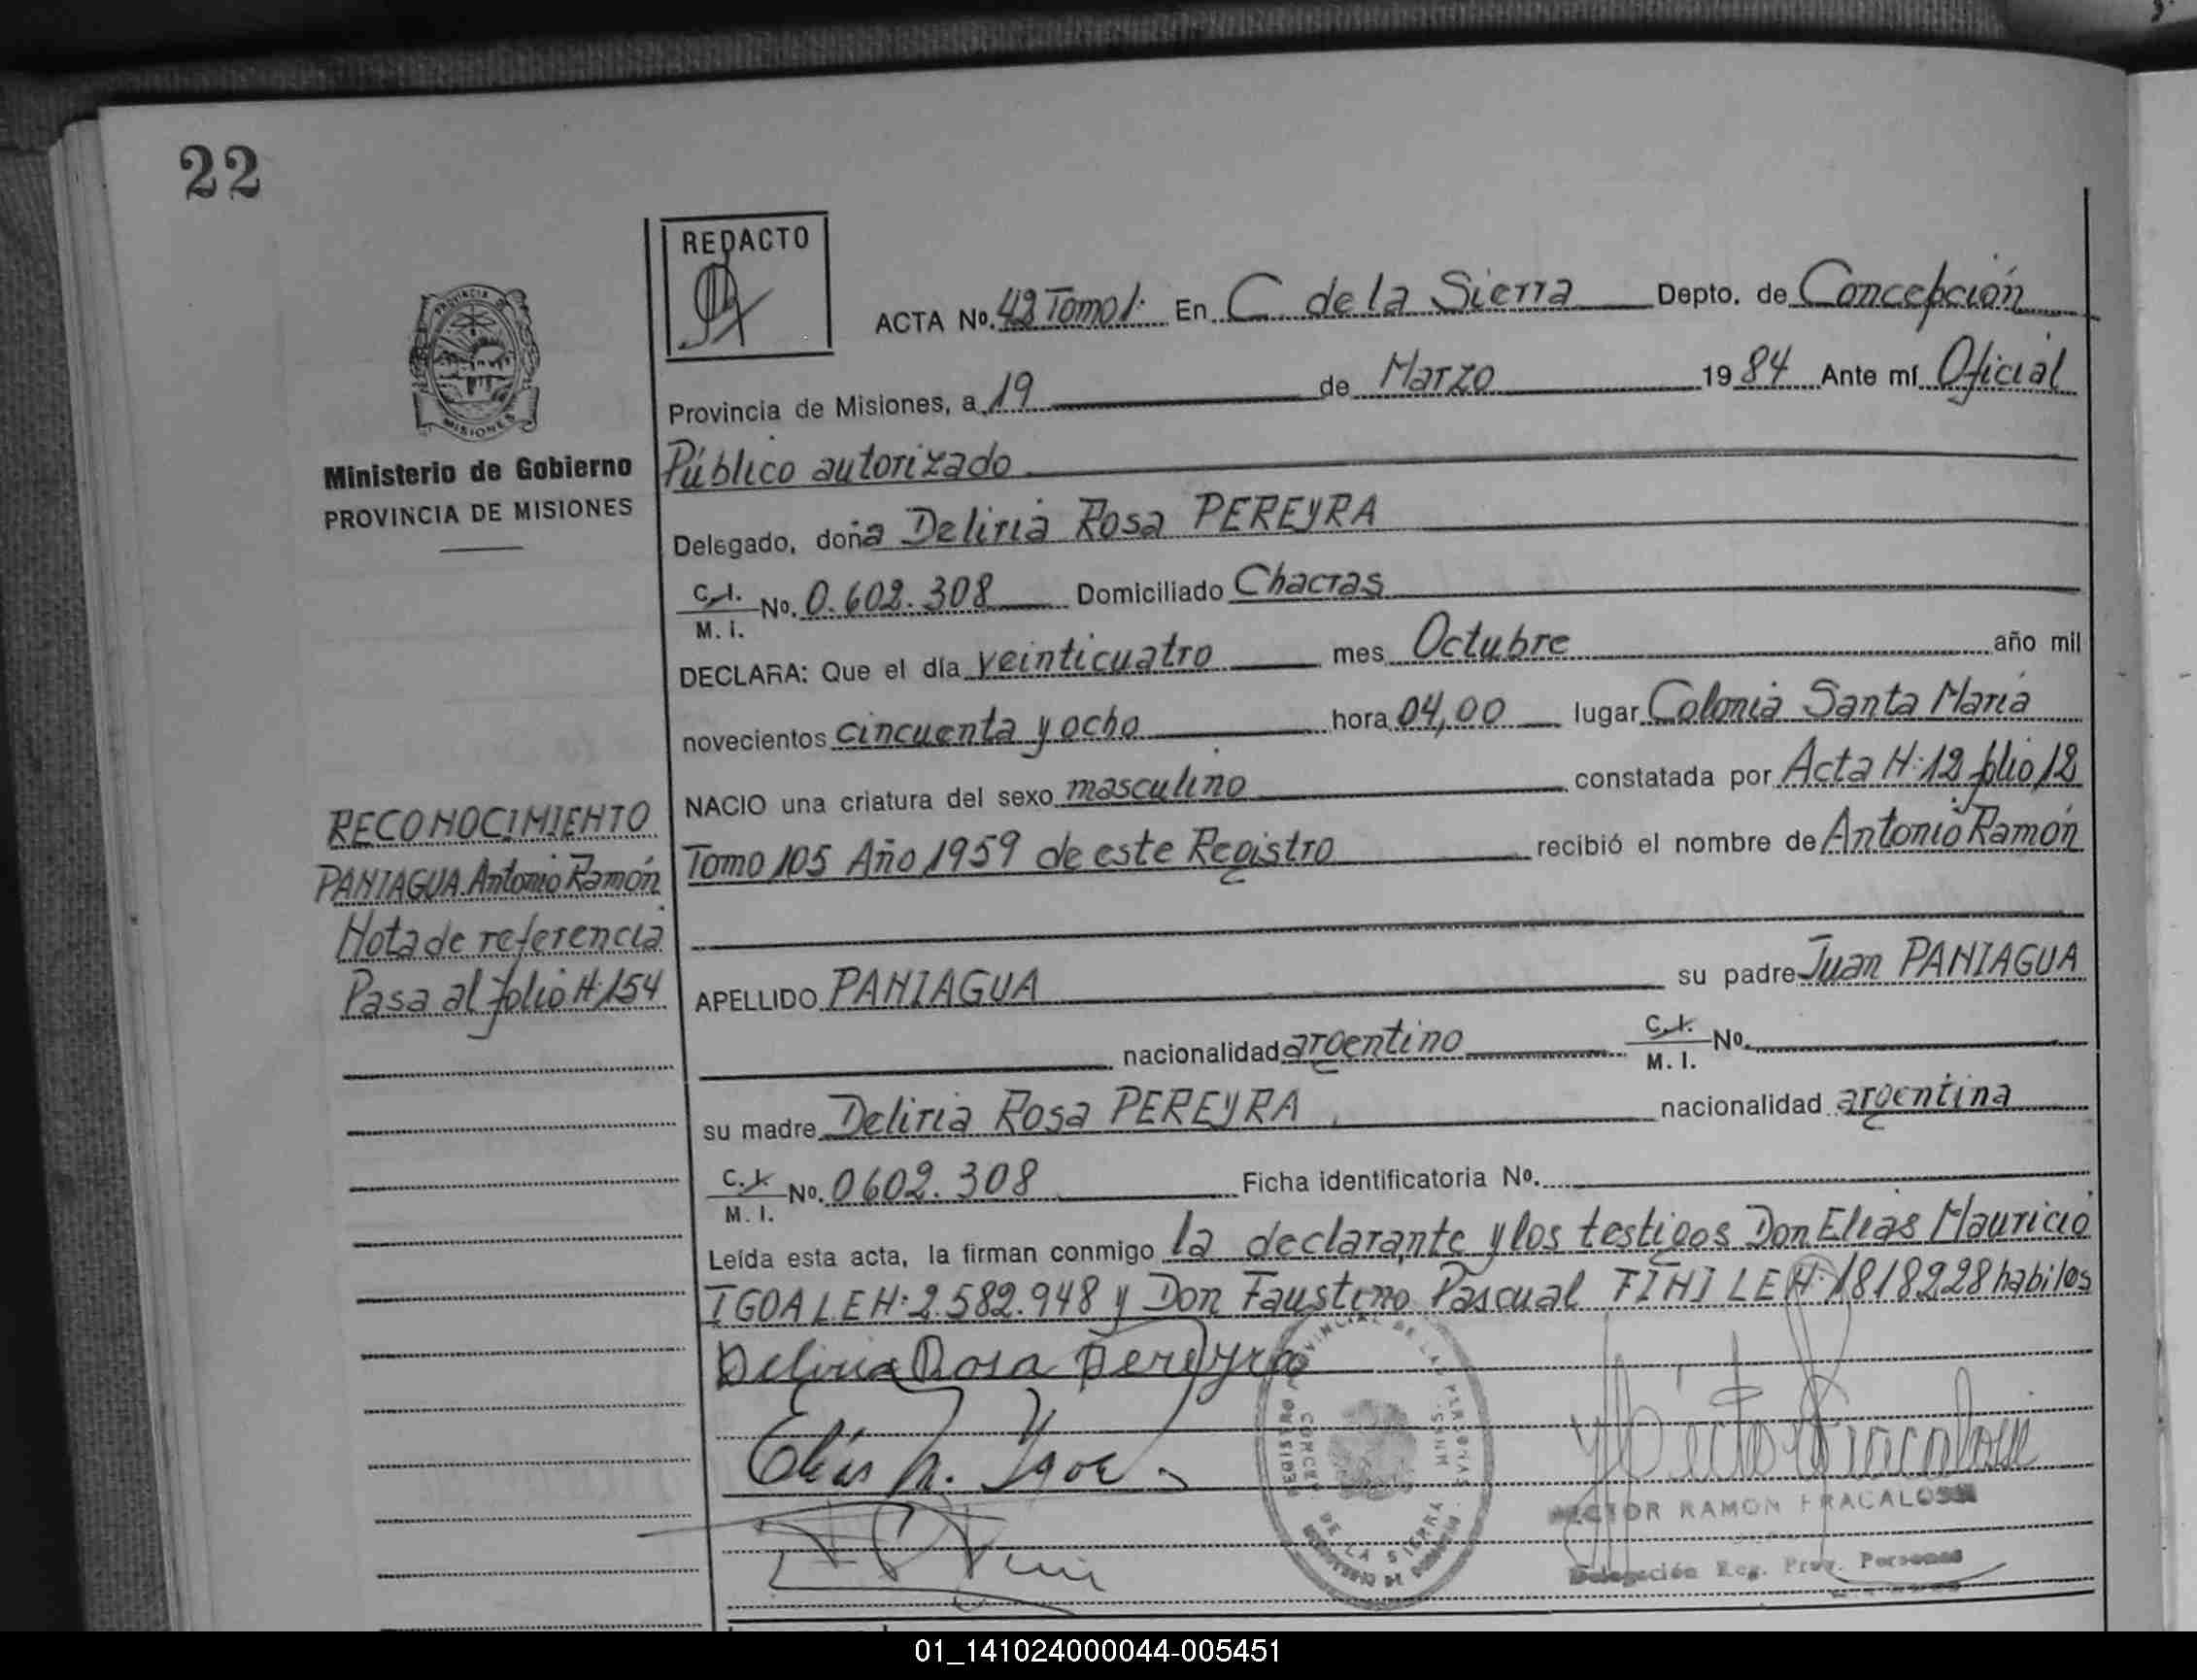 22
REDACTO
ACTA Nº. 42 Tomo 1. En C. de la Sierra Depto. de Concepción
Provincia de Misiones, a 19 de Marzo 1984 Ante mí Oficial
Público autorizado
PROVINCIA
MISIONES
Ministerio de Gobierno
PROVINCIA DE MISIONES
Delegado, doña Deliria Rosa PEREYRA
C.I. M. I. No. 0.602.308 Domiciliado Chacras
DECLARA: Que el día veinticuatro mes Octubre año mil
novecientos cincuenta y ocho hora 04,00 lugar Colonia Santa María
NACIO una criatura del sexo masculino constatada por Acta N: 12 folio 12
Tomo 105 Año 1959 de este Registro recibió el nombre de Antonio Ramón
RECONOCIMIENTO
PANIAGUA Antonio Ramón
Nota de referencia
Pasa al folio N: 154
APELLIDO PANIAGUA su padre Juan PANIAGUA
nacionalidad argentino C.I. M. I. No.
su madre Deliria Rosa PEREYRA nacionalidad argentina
C.I. M. I. No. 0602.308 Ficha identificatoria No.
Leída esta acta, la firman conmigo la declarante y los testigos Don Elias Mauricio
IGOA L.E N: 2.582.948 y Don Faustino Pascual FINI LE N: 1818228 habiles
Deliria Rosa Pereyra
Elías M. Igoa
DE LA SIERRA
HECTOR RAMON FRACALOSSI
Delegación Reg. Prov. Personas
01_141024000044-005451